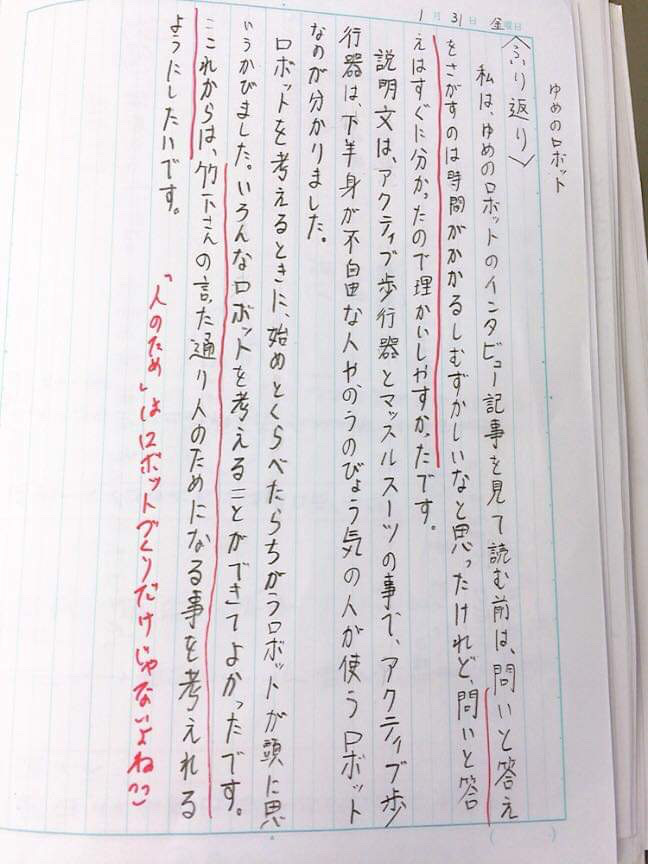 1月31日 金曜日
ゆめのロボット
〈ふり返り〉
私は、ゆめのロボットのインタビュー記事を見て読む前は、問いと答え
をさがすのは時間がかかるしむずかしいなと思ったけれど、問いと答
えはすぐに分かったので理かいしやすかったです。
説明文は、アクティブ歩行器とマッスルスーツの事で、アクティブ歩
行器は、下半身が不自由な人やのうのびょう気の人が使うロボット
なのが分かりました。
ロボットを考えるときに、始めとくらべたらちがうロボットが頭に思
いうかびました。いろんなロボットを考えることができてよかったです。
これからは、竹下さんの言った通り人のためになる事を考えれる
ようにしたいです。
「人のため」はロボットづくりだけじゃないよね